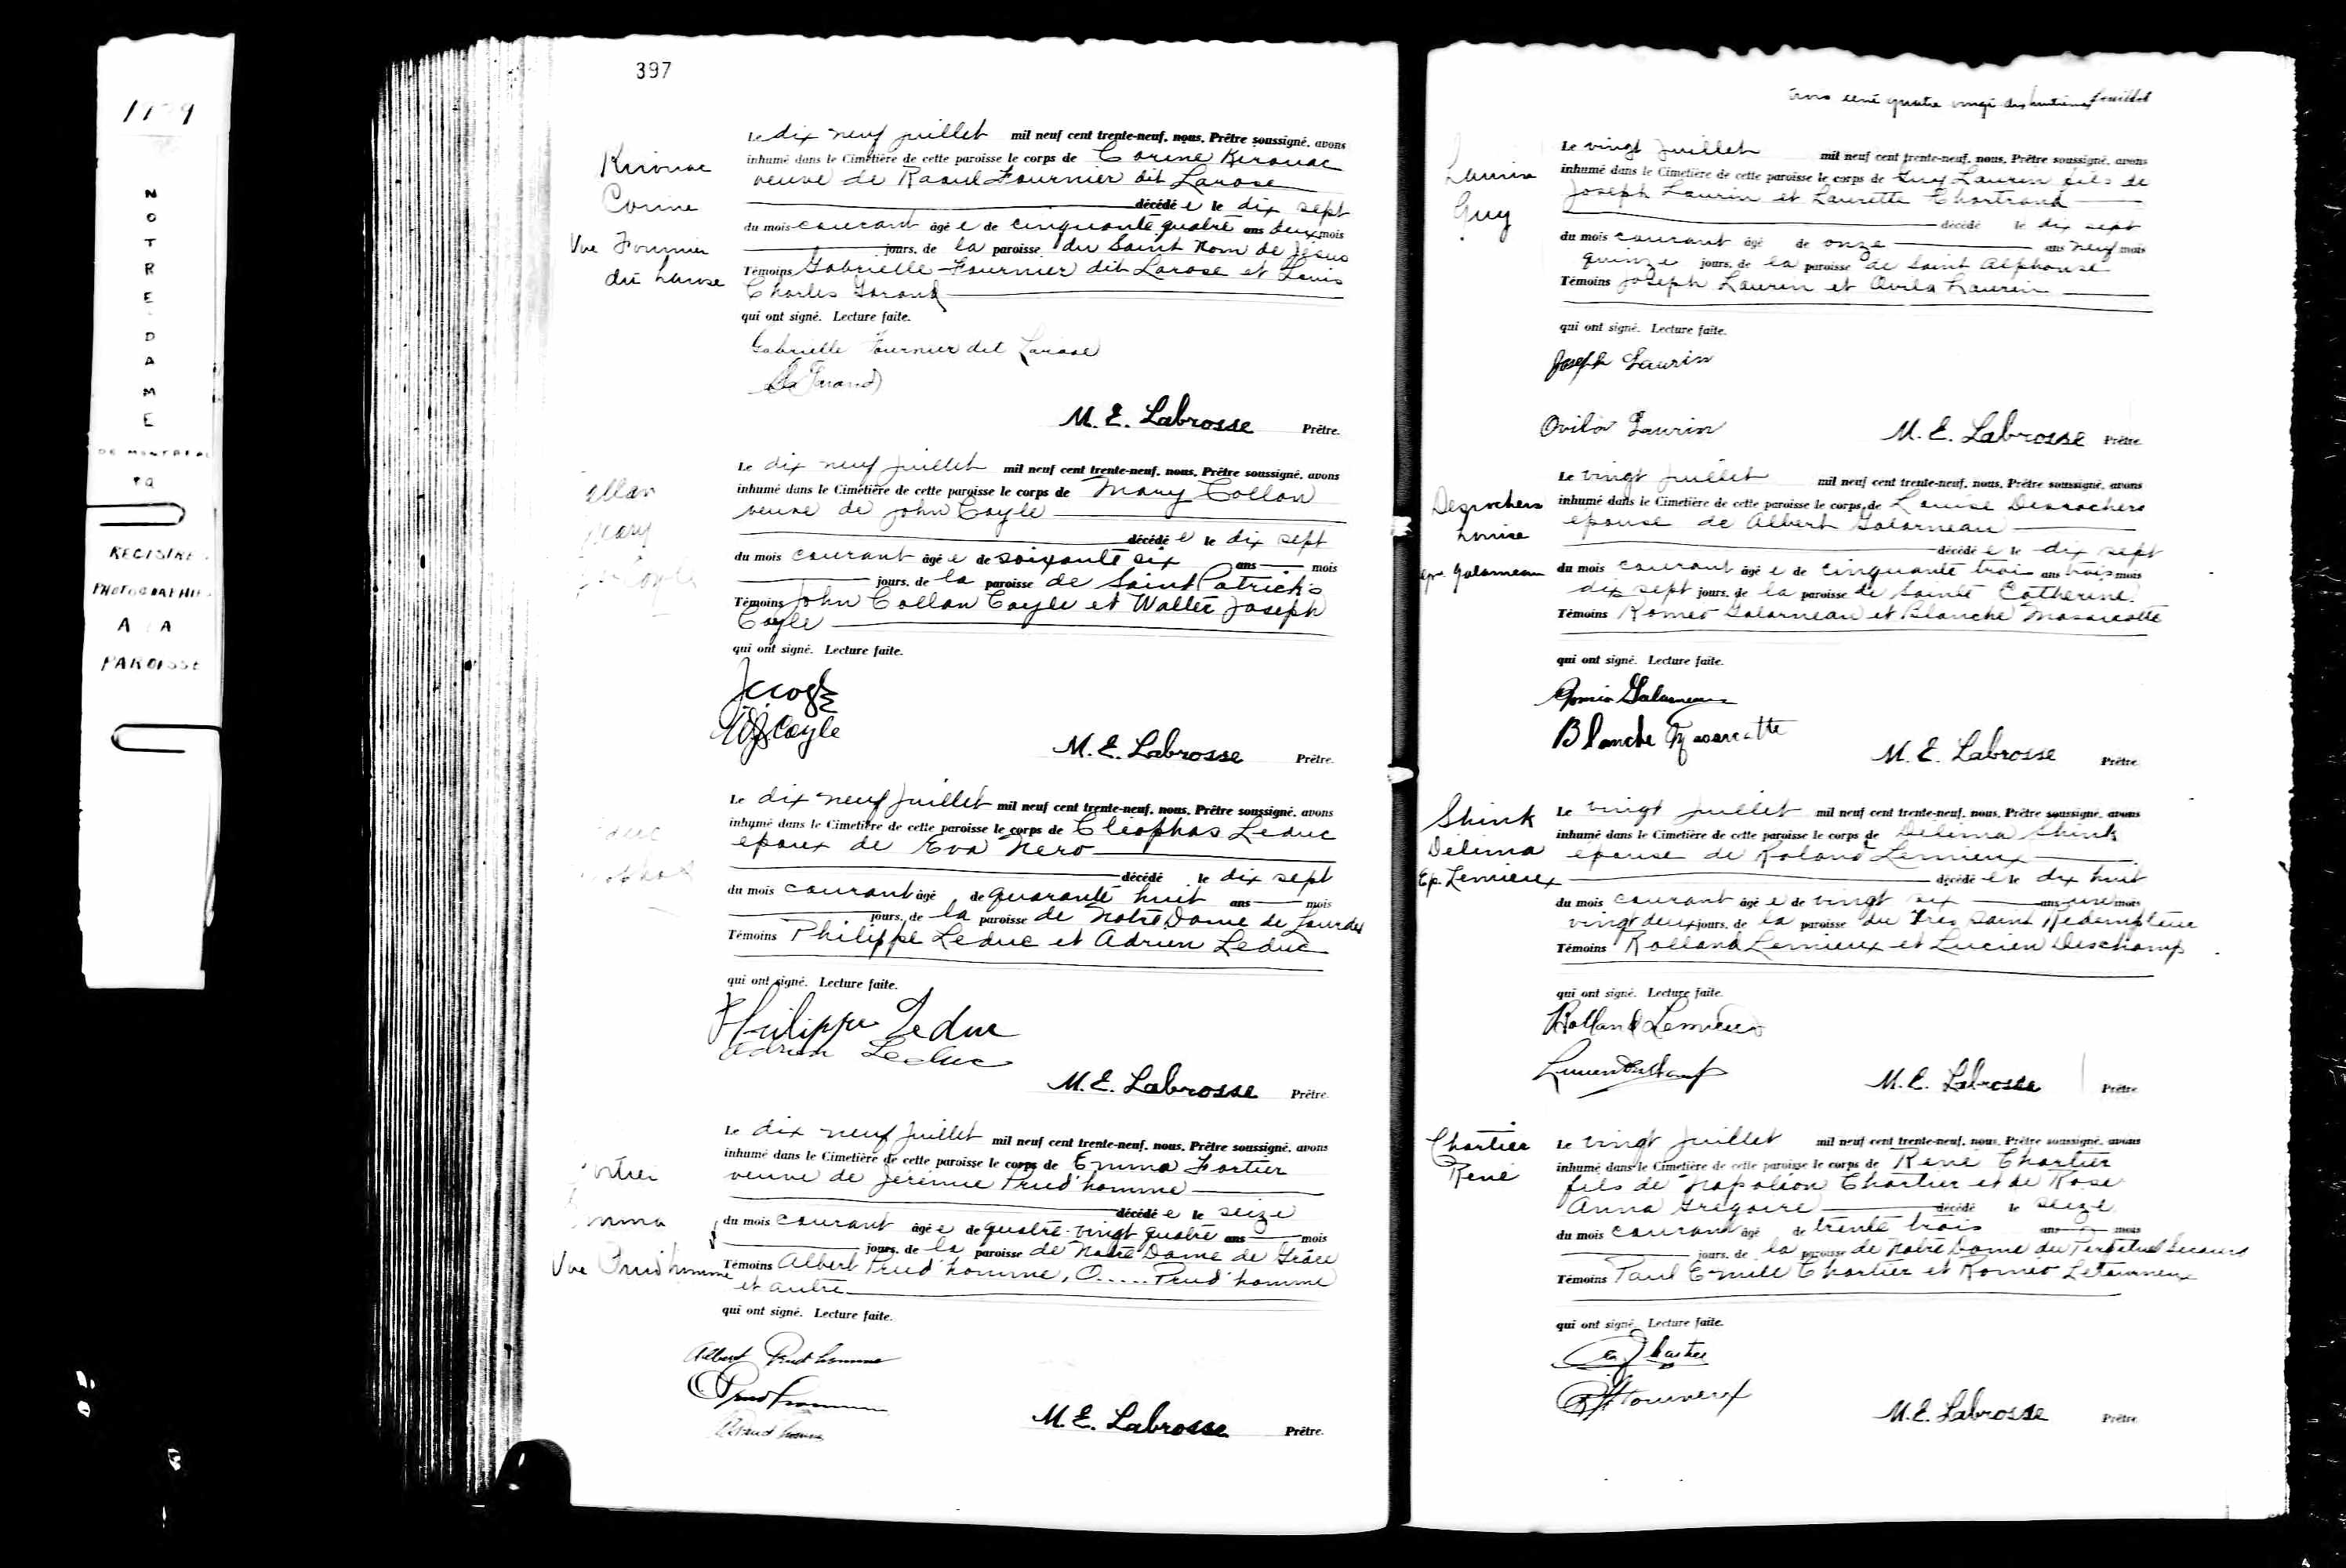 NOTRE DAME
DE MONTREAL
PQ
REGISTRE
PHOTOGRAPHIE
A LA
PAROISSE
397
Kirouac
Corine
Vve Fournier
dit Larose
Le dix neuf juillet mil neuf cent trente-neuf, nous, Prêtre soussigné, avons
inhumé dans le Cimetière de cette paroisse le corps de Corine Kerouac
veuve de Raoul Fournier dit Larose
décédé e le dix sept
du mois courant âgé e de cinquante quatre ans deux mois
jours, de la paroisse du Saint Nom de Jésus
Témoins Gabrielle Fournier dit Larose et Louis
Charles Garand
qui ont signé. Lecture faite.
Gabrielle Fournier dit Larose
Garand
M. E. Labrosse Prêtre.
allan
Mary
Coyle
Le dix neuf juillet mil neuf cent trente-neuf, nous, Prêtre soussigné, avons
inhumé dans le Cimetière de cette paroisse le corps de Mary Collan
veuve de John Coyle
décédé e le dix sept
du mois courant âgé e de soixante six ans mois
jours, de la paroisse de Saint Patrick's
Témoins John Collan Coyle et Walter Joseph
Coyle
qui ont signé. Lecture faite.
J C Coyle
W J Coyle
M. E. Labrosse Prêtre.
duc
Le dix neuf juillet mil neuf cent trente-neuf, nous, Prêtre soussigné, avons
inhumé dans le Cimetière de cette paroisse le corps de Cléophas Leduc
epoux de Eva Nero
décédé le dix sept
du mois courant âgé de quarante huit ans mois
jours, de la paroisse de Notre Dame de Lourdes
Témoins Philippe Leduc et Adrien Leduc
qui ont signé. Lecture faite.
Philippe Leduc
Adrien Leduc
M. E. Labrosse Prêtre.
ortier
mma
Vve Prud'homme
Le dix neuf juillet mil neuf cent trente-neuf, nous, Prêtre soussigné, avons
inhumé dans le Cimetière de cette paroisse le corps de Emma Fortier
veuve de Jérémie Prud'homme
décédé e le seize
du mois courant âgé e de quatre-vingt quatre ans mois
jours, de la paroisse de Notre Dame de Grâce
Témoins Albert Prud'homme, O..... Prud'homme
et autre
qui ont signé. Lecture faite.
Albert Prud'homme
O Prud'homme
Prud'homme
M. E. Labrosse Prêtre.
trois cent quatre vingt dix huitième feuillet
Laurin
Guy
Le vingt juillet mil neuf cent trente-neuf, nous, Prêtre soussigné, avons
inhumé dans le Cimetière de cette paroisse le corps de Guy Laurin fils de
Joseph Laurin et Laurette Chartrand
décédé le dix sept
du mois courant âgé de onze ans neuf mois
quinze jours, de la paroisse de Saint Alphonse
Témoins Joseph Laurin et Ovila Laurin
qui ont signé. Lecture faite.
Joseph Laurin
Ovila Laurin
M. E. Labrosse Prêtre
Desrochers
Louise
Epse Galarneau
Le vingt juillet mil neuf cent trente-neuf, nous, Prêtre soussigné, avons
inhumé dans le Cimetière de cette paroisse le corps de Louise Desrochers
épouse de Albert Galarneau
décédé e le dix sept
du mois courant âgé e de cinquante trois ans trois mois
dix sept jours, de la paroisse de Sainte Catherine
Témoins Romeo Galarneau et Blanche Masarcotte
qui ont signé. Lecture faite.
Romeo Galarneau
Blanche Masarcotte
M. E. Labrosse Prêtre
Shink
Délima
Ep. Lemieux
Le vingt juillet mil neuf cent trente-neuf, nous, Prêtre soussigné, avons
inhumé dans le Cimetière de cette paroisse le corps de Délima Shink
épouse de Roland Lemieux
décédé e le dix huit
du mois courant âgé e de vingt six ans une mois
vingt deux jours, de la paroisse du Très Saint Redempteur
Témoins Rolland Lemieux et Lucien Deschamp
qui ont signé. Lecture faite.
Rolland Lemieux
Lucien Deschamp
M. E. Labrosse Prêtre
Chartier
René
Le vingt juillet mil neuf cent trente-neuf, nous, Prêtre soussigné, avons
inhumé dans le Cimetière de cette paroisse le corps de René Chartier
fils de Napoléon Chartier et de Rose
Anna Grégoire décédé le seize
du mois courant âgé de trente trois ans mois
jours, de la paroisse de Notre Dame du Perpétuel Secours
Témoins Paul Emile Chartier et Romeo Letourneux
qui ont signé. Lecture faite.
Chartier
Letourneux
M. E. Labrosse Prêtre